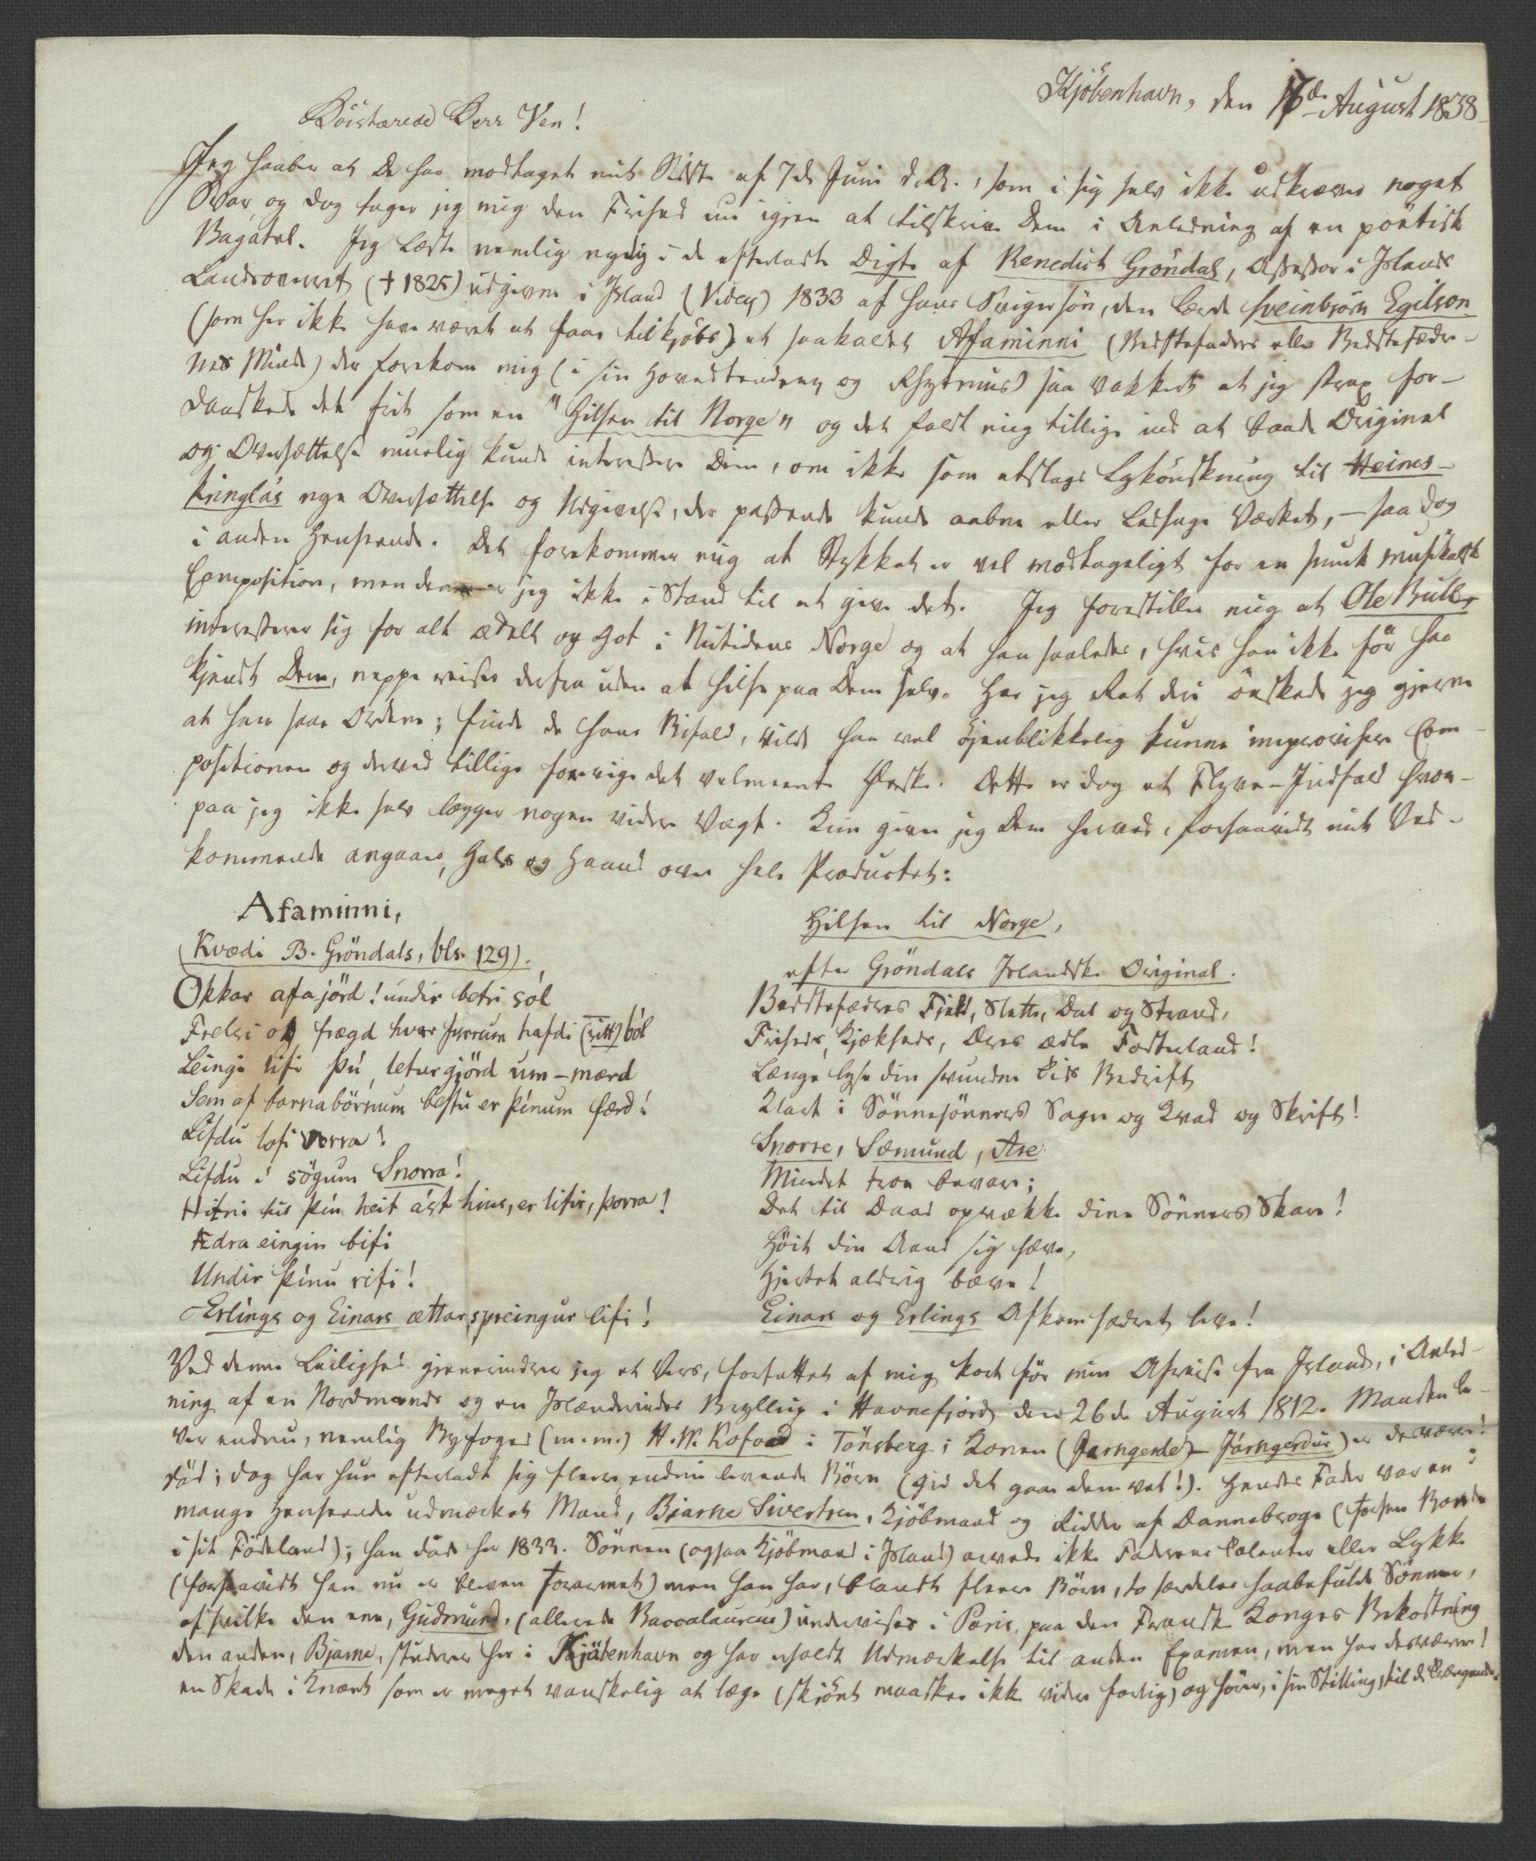 Kjöbenhavn, den 17de August 1838
Höistærede Herr Ven!
Jeg haaber at De har modtaget mit Sidste af 7de Juni d.A., som i sig selv ikke udkræver noget
Svar og dog tager jeg mig den Frihed nu igjen at tilskrive Dem i Anledning af en poëtisk
Bagatel. Jeg læste nemlig nylig i de efterladte Digte af Benedict Gröndal, Assessor i Islands
Landsoverret († 1825) udgivne i Island (Videy) 1833 af hans Svigersön, den lærde Sveinbjörn Egilson
(som her ikke have været at faae tilkjöbs) et saakaldet Afaminni (Bedstefaders eller Bedstefædre-
nes Minde) der forekom mig (i sin Hovedtendenz og Rhytmus) saa vakkert at jeg strax for-
danskede det frit som en "Hilsen til Norge" og det faldt mig tillige ind at baade Original
og Oversættelse muelig kunde interessere Dem, om ikke som etslags Lykönskning til Heims-
kringlas nye Oversættelse og Udgivelse, der passende kunde aabne eller ledsage Værket, – saa dog
i anden Henseende. Det forekommer mig at Stykket er vel modtageligt for en smuk musikalsk
Composition, men den er jeg ikke i Stand til at give det. Jeg forestiller mig at Ole Bull
interesserer sig for alt ædelt og got i Nutidens Norge og at han saaledes, hvis han ikke för har
kjendt Dem, neppe reiser derfra uden at hilse paa Dem selv. Har jeg Ret deri önskede jeg gjerne
at han saae Ordene; finde de hans Bifald, vilde han vel öjenblikkelig kunne improvisere Com-
positionen og derved tillige forevige det velmeente Önske. Dette er dog et Flyve-Indfald hvor-
paa jeg ikke selv lægger nogen videre Vægt. Kun giver jeg Dem herved, forsaavidt mit Ved-
kommende angaaer, Hals og Haand over hele Productet:
Afaminni,
(Kvædi B. Gröndals, bls. 129).
Okkar afajörd! undir betri sól
Frelsi og frægd hvar fyrrum hafdi (sitt) ból
Leingi lifi þín, letur gjörd um-mærd
Sem af barnabörnum bestu er þínum færd!
Lifdu lofi vorra!
Lifdu í sögum Snorra!
Hitni til þín heit ást hins, er lifir, þorra!
Ædra eingin bifi
Undir þínu rifi!
Erlings og Einars ættar spreingur lifi!
Hilsen til Norge,
efter Gröndals Islandske Original.
Bedstefædres Field, Slette, Dal og Strand,
Friheds, Kjækheds, Deres ædle Fosterland!
Længe lyse din svundne Tids Bedrift
Klart i Sönnesönners Sagn og Kvad og Skrift!
Snorre, Sæmund, Are
Mindet troe bevare;
Det til Daad opvække dine Sönners Skare!
Höit din Aand sig hæve,
Hjertet aldrig bæve!
Einars og Erlings Afkom hædret leve!
Ved denne Leilighed gjenerindrer jeg et Vers, forfattet af mig kort för min Afreise fra Island, i Anled-
ning af en Nordmands og en Islænderindes Bryllup i Havnefjord den 26de August 1812. Manden le-
ver endnu, nemlig Byfoged (m.m.) H.W. Kofoed i Tönsberg; Konen (Jarngerd – Járngerdur) er desværre!
död; dog har hun efterladt sig flere endnu levende Börn (gid det gaae dem vel!). Hendes Fader var en i
mange Henseender udmærket Mand, Bjarne Sivertsen, Kjöbmand og Ridder af Dannebroge ( Bonde
i sit Födeland); han döde her 1833. Sönnen (ogsaa Kjöbmand i Island) arvede ikke Faderens Talenter eller Lykke
(forsaavidt han nu er bleven forarmet) men han har, blandt flere Börn, to særdeles haabefulde Sönner,
af hvilke den ene, Gudmund, (allerede Baccalaureus) underviises i Paris, paa den Franske Konges Bekostning
den anden, Bjarne, studerer her i Kjöbenhavn og har erholdt Udmærkelse til anden Examen, men har desværre!
en Skade i Knæet som er meget vanskelig at læge (skjönt maaskee ikke videre farlig) og hörer, i sin Stilling, til de Trængende